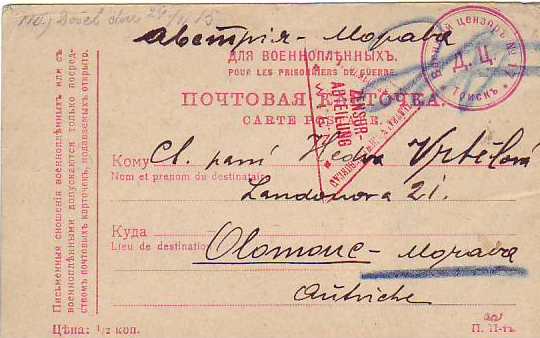 24/ 15
Австрія - Морава
ДЛЯ ВОЕННОПЛѢННЫХЪ.
POUR LES PRISONIERS DE GUERRE.
ПОЧТОВАЯ КАРТОЧКА.
CARTE POSTALE.
Военный цензоръ № 12
Д. Ц.
Томскъ
ZENSUR-
ABTEILUNG
Кому
Sl. paní Hedva Vrtělová
Nom et prenom du destinataire
Landova 21.
Куда
Lieu de destination
Olomouc - Морава
Autriche
Письменныя сношенія военноплѣнныхъ или съ
военноплѣнными допускаются только посред-
ствомъ почтовыхъ карточекъ, подаваемыхъ открыто.
Цѣна: 1/2 коп.
П. П-ть.